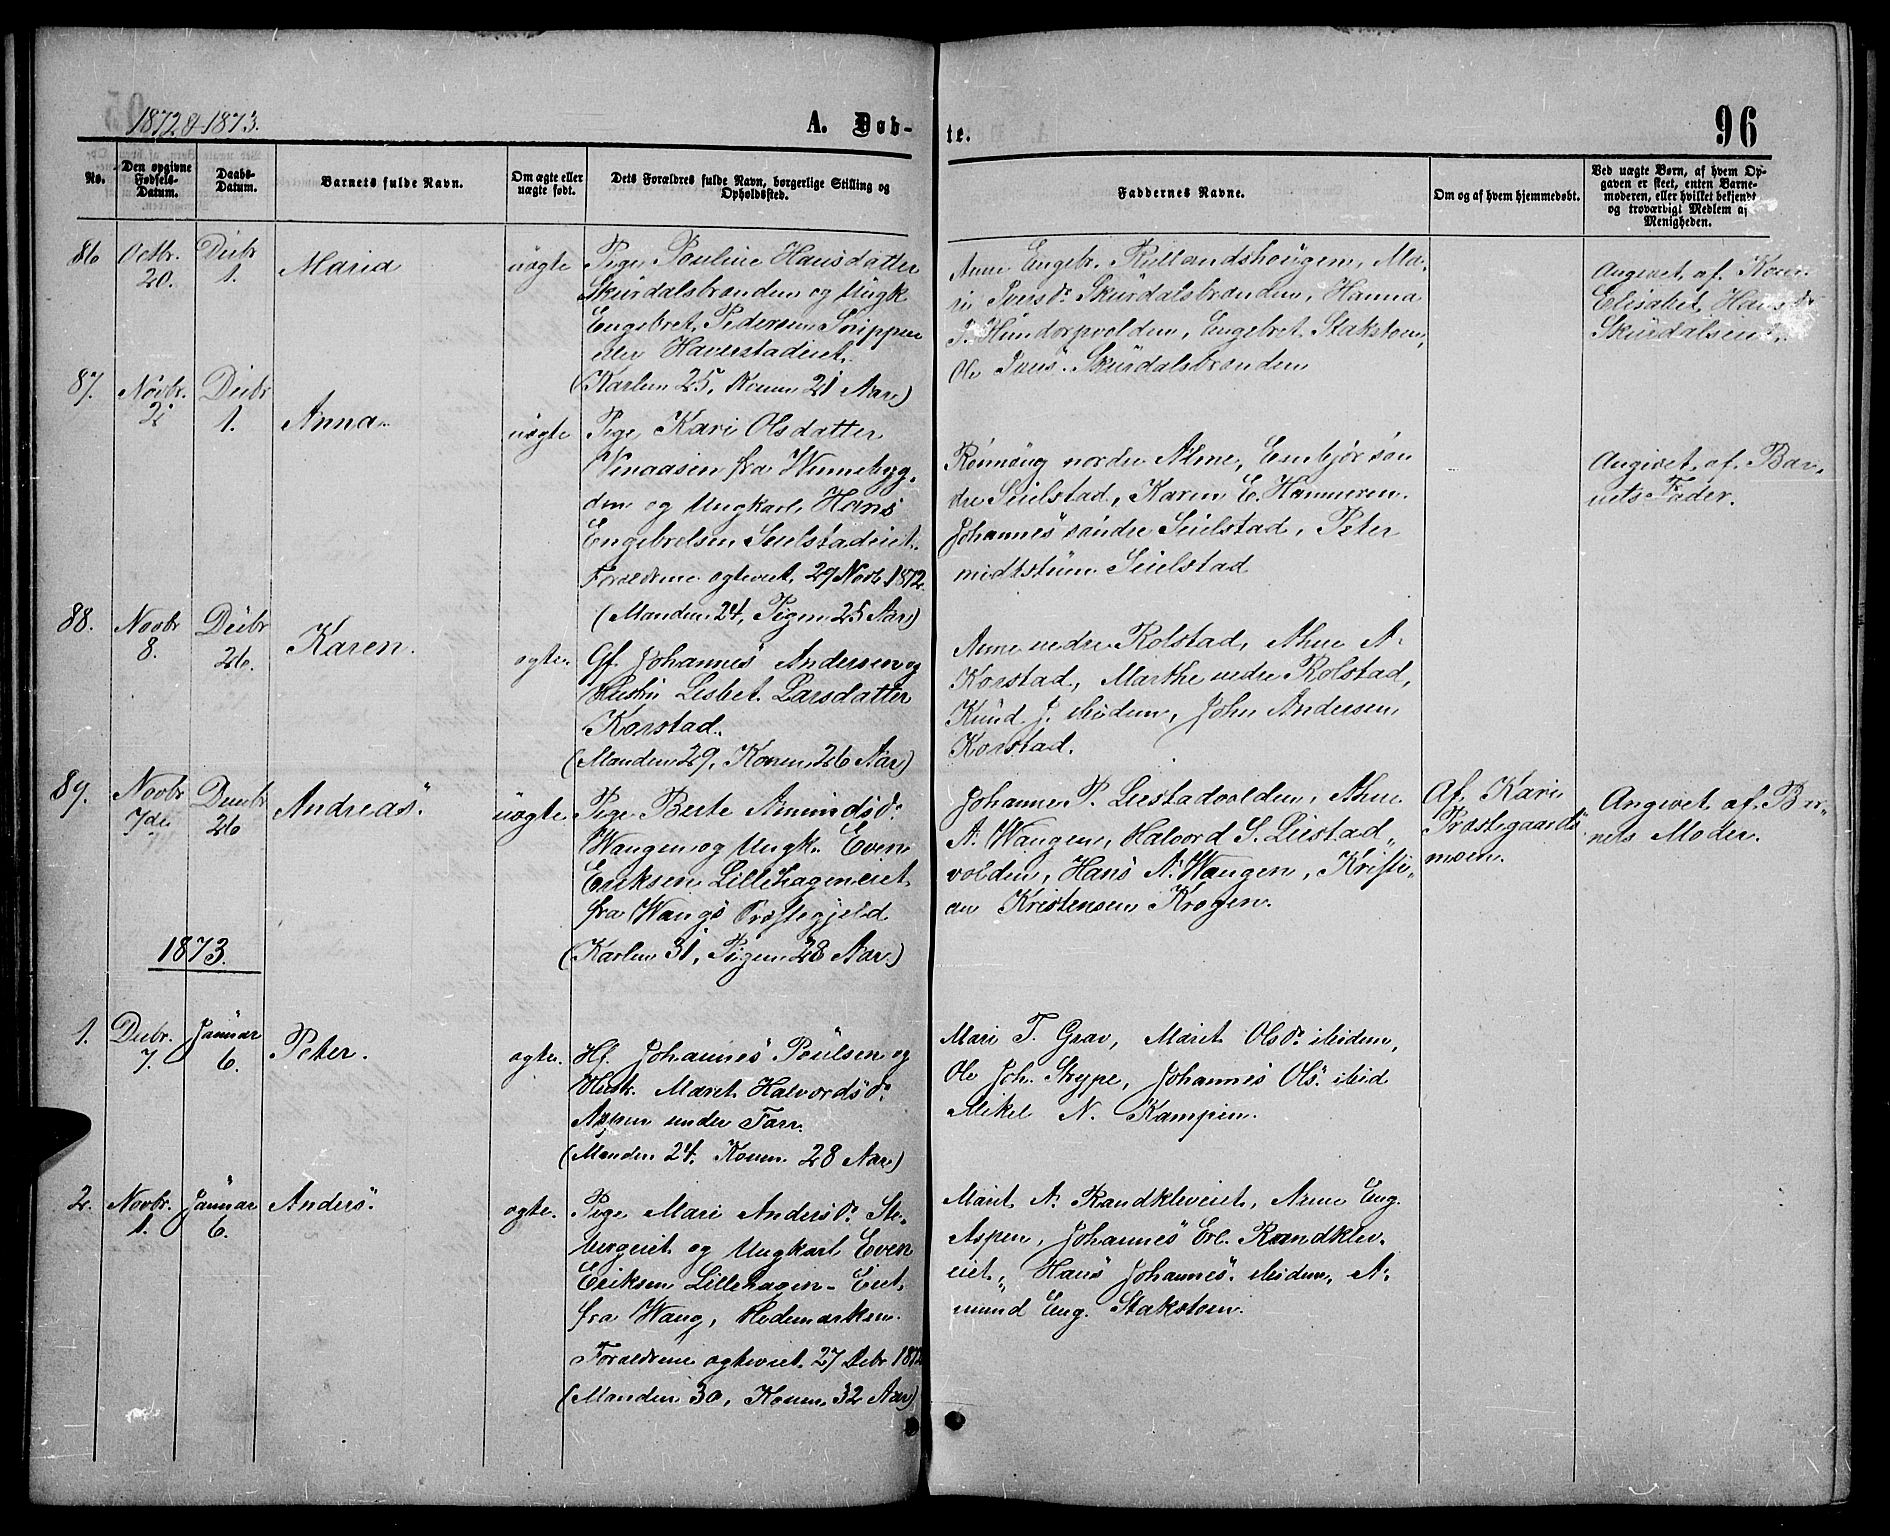 1872 & 1873.
A. Døb-
te.
96
No.
Den opgivne Fødsels-Datum.
Daabs-Datum.
Barnets fulde Navn.
Om ægte eller uægte født.
Dets Forældres fulde Navn, borgerlige Stilling og Opholdssted.
Faddernes Navne.
Om og af hvem hjemmedøbt.
Ved uægte Børn, af hvem Opgaven er skeet, enten Barnemoderen, eller hvilket bekjendt og troværdigt Medlem af Menigheden.
86 Octbr. 20. Decbr 1. Maria uægte
Pige Pauline Hansdatter
Skurdalsbrænden og Ungk.
Engebret Pedersen Snippen
eller Haverstadeiet.
(Karlen 25, Konen 21 Aar)
Anne Engebr. Rullandshougen, Ma-
ri Iversdr Skurdalsbrænden, Hanna
J. Hundorpvolden, Engebret Stakstoen,
Ole Ivers. Skurdalsbrænden
Angivet af Karen
Elisabet Hansdr
Skurdalseiet.
87. Novbr. 2 Decbr 1. Anna. uægte
Pige Kari Olsdatter
Vinaasen fra Winnebyg-
den og Ungkarl Hans
Engebretsen Seielstadeiet.
Forældrene ægteviet 29 Novb. 1872
(Manden 24, Pigen 25 Aar)
Rønnøug nordre Alme, Embjør søn-
dre Seielstad, Karen E. Hammeren.
Johannes søndre Seielstad, Peter
midtstuen Seielstad
Angivet af Bar-
nets Fader.
88. Novbr 8. Decbr 26. Karen. ægte.
Gf. Johannes Andersen og
Hustru Lisbet Larsdatter
Korstad.
(Manden 29, Konen 26 Aar)
Anne nedre Rolstad, Anne A.
Korstad, Marthe nedre Rolstad,
Knud J. ibidem, John Andersen
Korstad.
89. Novbr 7de Decmbr 26 Andreas. uægte
Pige Berte Amundsdr.
Wangen og Ungk. Even
Eriksen Lillehageneiet
fra Wangs Præstegjeld
(Karlen 31, Pigen 28 Aar.)
Johanne P. Liestadvolden, Anne
A. Wangen, Halvord S. Liestad-
volden, Hans A. Wangen, Kristi-
an Kristensen Krogen.
Af Kari
Præstegaards-
moen.
Angivet af Bar-
nets Moder.
1873.
1. Decbr. 7. Januar 6. Peter. ægte.
Hf. Johannes Poulsen og
Hustr. Maret Halvordsdr.
Aspen under Farr.
(Manden 24. Konen 28 Aar)
Mari T. Grav, Marit Olsdr. ibidem,
Ole Joh. Skype, Johannes Ols. ibid
Mikel N. Kampen.
2. Novbr. 1. Januar 6. Anders. ægte.
Pige Mari Andersdr. Ste-
bergeiet og Ungkarl Even
Eriksen Lillehagen-Eiet
fra Wang, Hedemarken.
Forældrene ægteviet 27 Decbr 1872
(Manden 30, Konen 32 Aar)
Marit A. Randkleveiet, Anne Eng.
Aspen, Johannes Erl. Randklev-
eiet, Hans Johannes. ibidem, A-
mund Eng. Stakstoen.